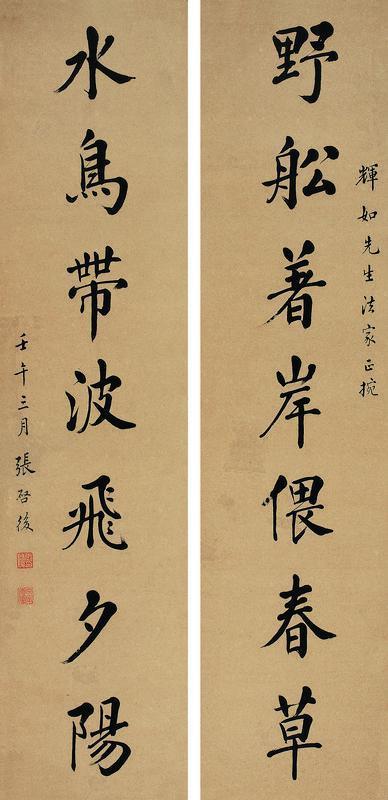 輝如先生法家正捥
野舩着岸偎春草
水鳥帶波飛夕陽
壬午三月張啓後